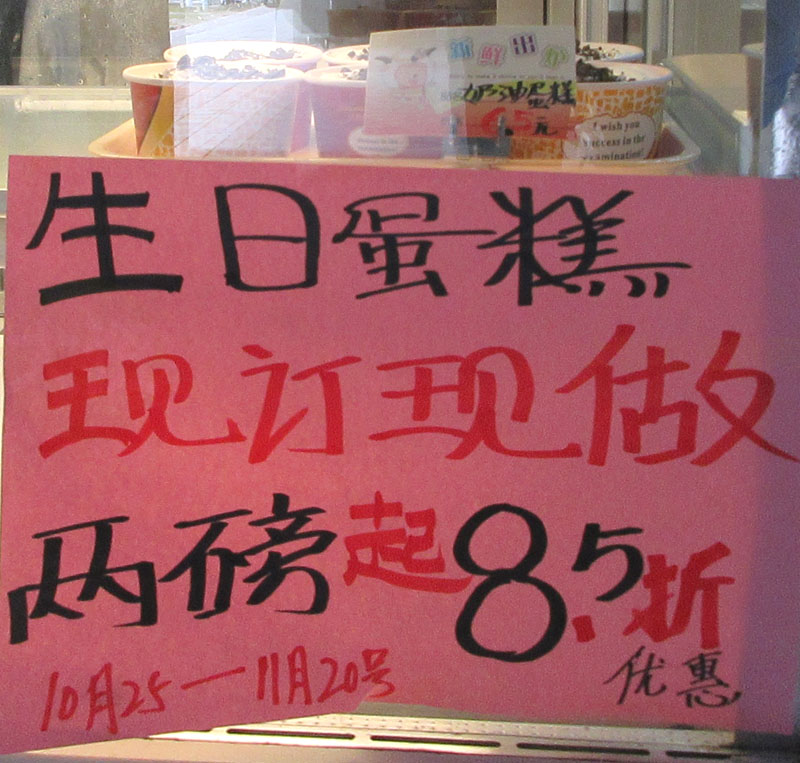 新鲜出炉
奶油蛋糕
6.5元
I wish you
success in the
examination!
生日蛋糕
现订现做
两磅起8.5折
优惠
10月25—11月20号